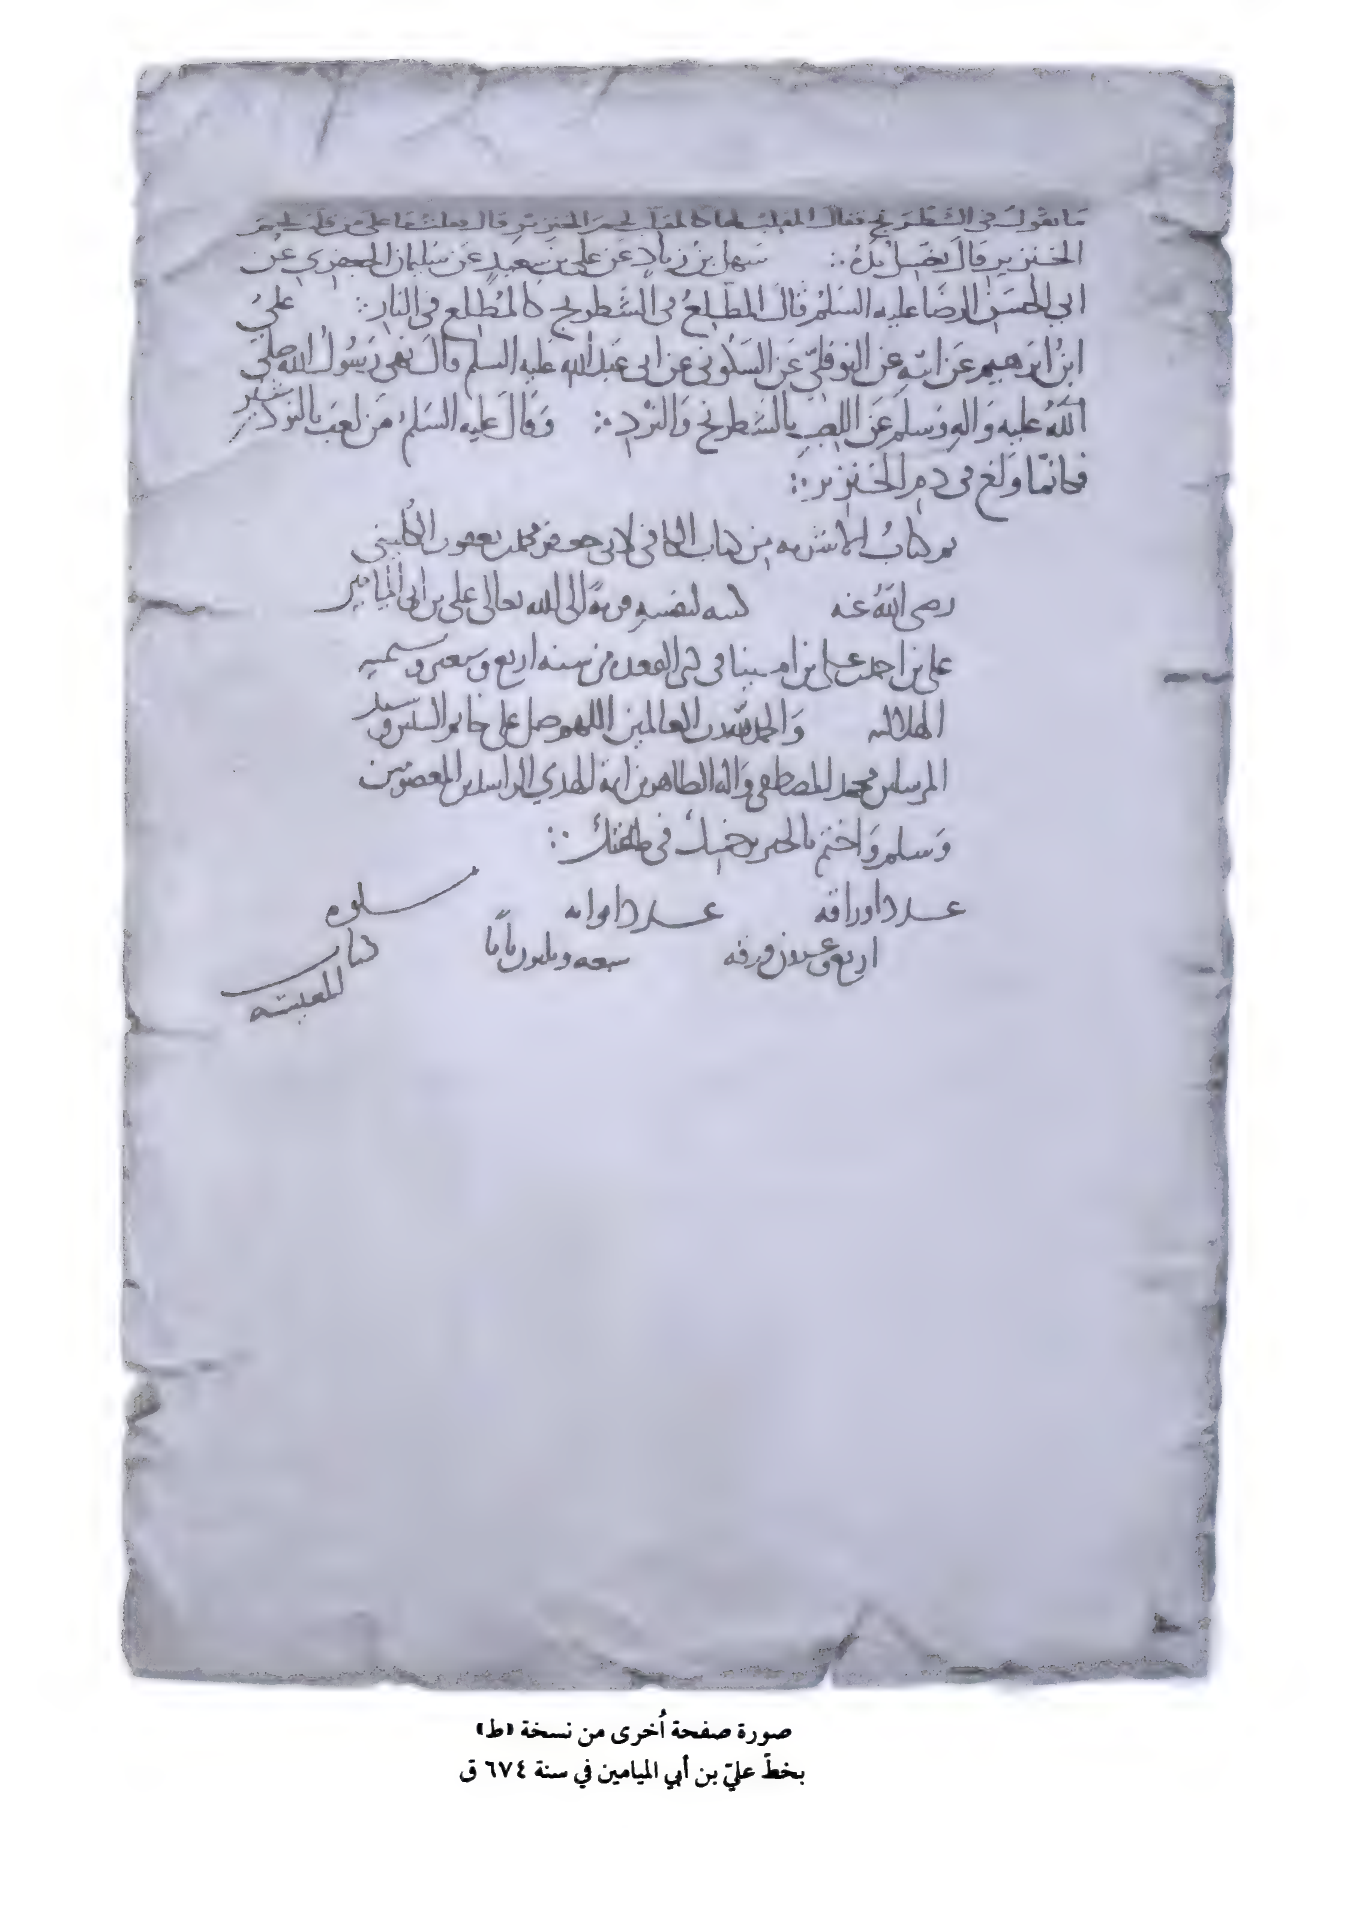 ما تقول في الشطرنج فقال المقلب لها كالمقلب لحم الخنزير قال فقلت ما على من قلب لحم
الخنزير قال يغسل يده ∴ سهل بن زياد عن علي بن سعيد عن سليمان الجعفري عن
ابي الحسن الرضا عليه السلم قال المطلع في الشطرنج كالمطلع في النار ∴ علي
ابن ابرهيم عن ابيه عن النوفلي عن السكوني عن ابي عبد الله عليه السلم قال نهى رسول الله صلى
الله عليه واله وسلم عن اللعب بالشطرنج والنرد ∴ وقال عليه السلم من لعب بالنردشير
فكانما ولغ في دم الخنزير ∴
تم كتاب الاشربه من كتاب الكافي لابي جعفر محمد بن يعقوب الكليني
رضي الله عنه كتبه لنفسه قربة الى الله تعالى علي بن ابي الميامين
علي بن احمد بن علي بن امسينا في ذي القعده من سنه اربع وسبعين وستميه
الهلاليه والحمد لله رب العالمين اللهم صل على خاتم النبيين وسيد
المرسلين محمد المصطفى واله الطاهرين ايمة الهدى الراشدين المعصومين
وسلم واختم بالخير برحمتك في
عدد اوراقه عدد ابوابه يتلوه
اربع وعشرون ورقه سبعه وثلثون بابا كتاب
المعيشه
صورة صفحة أُخرى من نسخة «ط»
بخطّ عليّ بن أبي الميامين في سنة ٦٧٤ ق